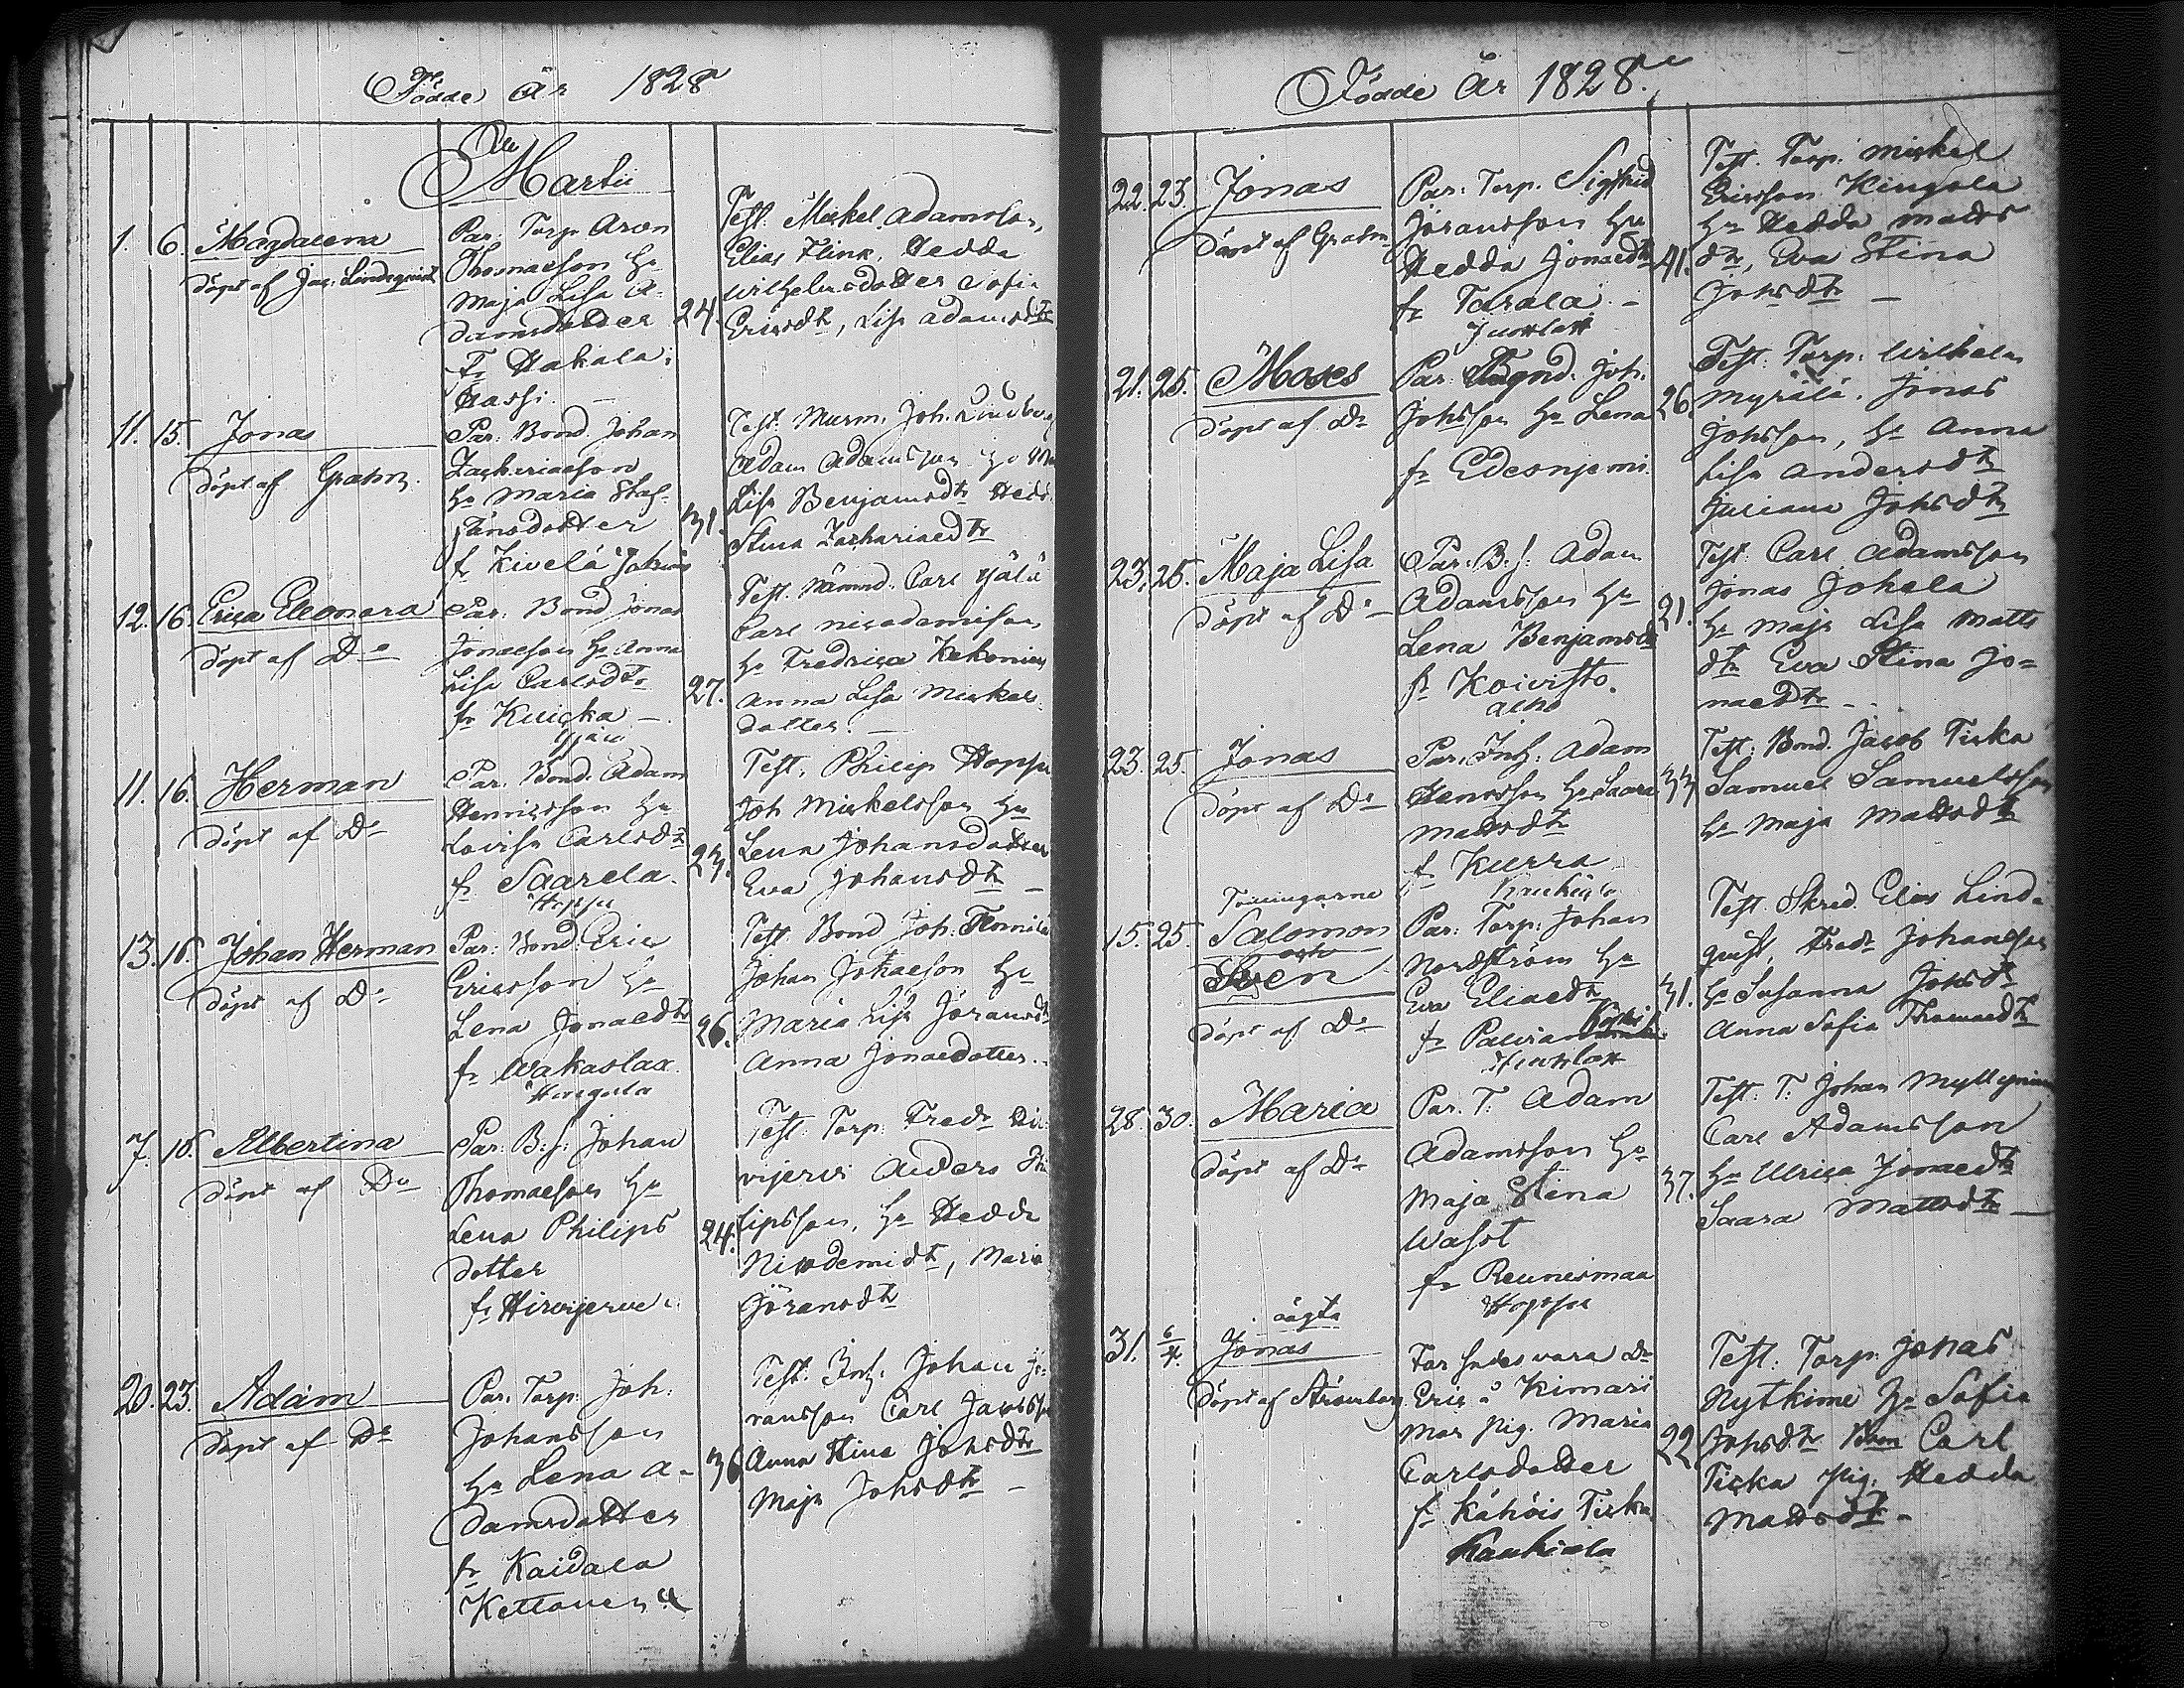 Födde År 1828
Martii
1. 6. Magdalena
döpt af Jac. Lindeqvist
Par: Torp. Aron
Thomasson Hu
Maja Lisa A-
damsdotter
fr Hakala
24.
Test. Mickel Adamsson,
Elias Flink, Hedda
Wilhelmsdotter Sofia
Ericsdtr, Lisa Adamsdtr
11. 15. Jonas
döpt af Grahn.
Par: Bond. Johan
Zachariasson
Hu Maria Staf-
fansdotter
fr Kivelä
31.
Test. Murm. Joh. Lindberg
Adam Adamsson Hu
Lisa Benjamsdtr Hedd.
Stina Zachariaedtr
12. 16. Erica Eleonora
döpt af Do
Par: Bond Jonas
Jonaeson Hu Anna
Lisa Carlsdtr
fr Kuicka
27.
Test. Nämnd. Carl Yjälä
Carl Nicodemison
Hu Fredrica Kekonius
Anna Lisa Mickels
dotter.
11. 16. Herman
döpt af Do
Par: Bond. Adam
Henricsson Hu
Lovisa Carlsdtr
fr Saarela
Hoppu
23.
Test. Philip Hoppu
Joh Mickelsson Hu
Lena Johansdotter
Eva Johansdtr
13. 16. Johan Herman
döpt af Do
Par: Bond. Eric
Ericsson Hu
Lena Jonaedtr
fr Wakaslax
Hingula
26.
Test. Bond Joh.
Johan Johaeson Hu
Maria Lisa Göransdtr
Anna Jonaedotter.
7. 16. Albertina
döpt af Do
Par: B. S. Johan
Thomaeson Hu
Lena Philips
dotter
fr Hirvijerve
24.
Test. Torp. Fredr Hir
vijervi Anders Phi
lipsson, Hu Hedda
Nicodemidtr, Maria
Göransdtr
20. 23. Adam
döpt af Do
Par. Torp. Joh.
Johansson
Hu Lena A-
damsdotter
fr Kaidala
Kettanen
36
Test. Inh. Johan Jö-
ransson Carl Jacobsson
Anna Stina Johsdtr
Maja Johsdtr
Födde År 1828.
22. 23. Jonas
döpt af Grahn
Par: Torp. Sigfrid
Göransson Hu
Hedda Jonaedtr
fr Tarala
41.
Test. Torp. Mickel
Ericsson Kingula
Hu Hedda Matts
dtr, Eva Stina
Johsdtr
21. 25. Moses
döpt af Do
Par: Joh.
Johsson Hu Lena
fr Edesnjemi
26.
Test. Torp. Wilhelm
Myrälä. Jonas
Johsson, Hu Anna
Lisa Andersdtr
Juliana Johsdtr
23. 25. Maja Lisa
döpt af Do
Par. B. S. Adam
Adamsson Hu
Lena Benjamsdtr
fr Koivisto.
21.
Test. Carl Adamsson
Jonas Johala
Hu Maja Lisa Matts
dtr Eva Stina Jo-
naedtr
23. 25. Jonas
döpt af Do
Par. Inh. Adam
Henrsson Hu Saara
Mattsdtr
fr Kurra
Kaukiala
33
Test. Bond. Jacob Ticka
Samuel Samuelsson
Hu Maja Mattsdtr
Tvillingarne
15. 25. Salomon
och
Sven
döpt af Do
Par. Torp. Johan
Nordström Hu
Eva Eliaedtr
31.
Test. Skred. Elias Lind-
quist, Fredr Johansson
Hu Susanna Johsdtr
Anna Sofia Thomaedtr
28. 30. Maria
döpt af Do
Par. T. Adam
Adamsson Hu
Maja Stina
Wasst
fr Reunesmaa
Hoppu
37.
Test: T. Johan Myllyniemi
Carl Adamsson
Hu Ulrica Jonaedtr
Saara Mattsdtr
oägta
31. 6/4. Jonas
döpt af Strömberg
Far sades vara Dr
Eric å Kimari
Mor Pig. Maria
Carlsdotter
fr Kähöis Ticka
Kaukiala
22.
Test. Torp. Jonas
Nytkime Hu Sofia
Johsdtr Bson Carl
Ticka Pig. Hedda
Mattsdtr